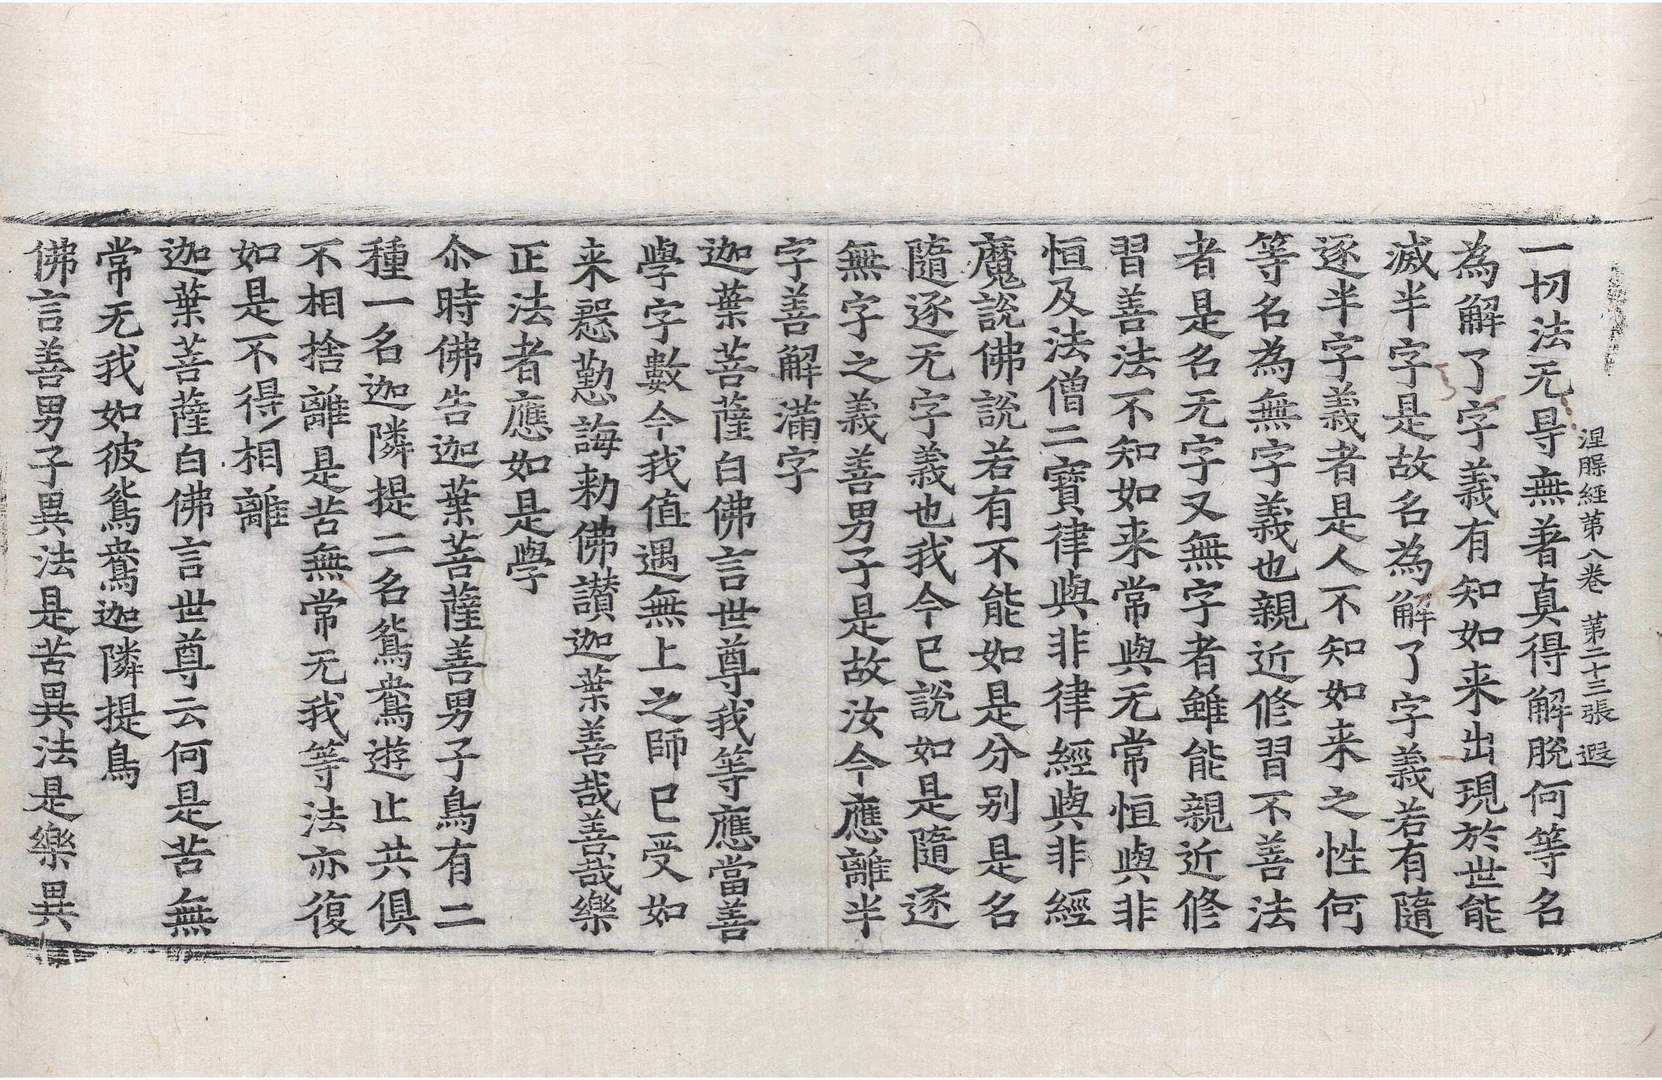 涅脲経第八卷 第二十三張 遐
一切法无㝵無著真得解脫何等名
為解了字義有知如来出現於世能
滅半字是故名為解了字義若有隨
逐半字義者是人不知如来之性何
等名為無字義也親近修習不善法
者是名无字又無字者雖能親近修
習善法不知如来常與无常恒與非
恒及法僧二寶律與非律經與非經
魔說佛說若有不能如是分別是名
隨逐无字義也我今已說如是隨逐
無字之義善男子是故汝今應離半
字善解滿字
迦葉菩薩白佛言世尊我等應當善
學字數今我值遇無上之師已受如
来慇懃誨勑佛讃迦葉善哉善哉樂
正法者應如是學
尒時佛告迦葉菩薩善男子鳥有二
種一名迦隣提二名鴛鴦遊止共俱
不相捨離是苦無常无我等法亦復
如是不得相離
迦葉菩薩白佛言世尊云何是苦無
常无我如彼鴛鴦迦隣提鳥
佛言善男子異法是苦異法是樂異